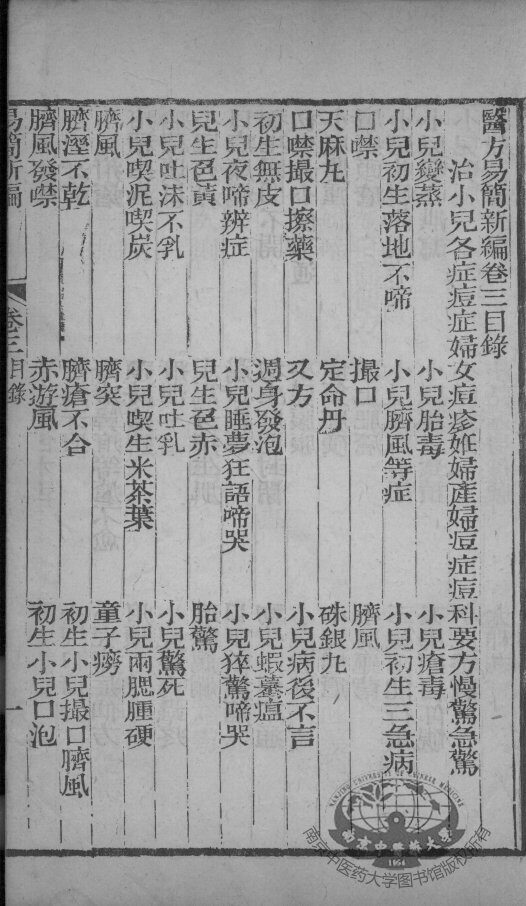 醫方易簡新編卷三目錄
治小兒各症痘症婦女痘疹姙婦產婦痘症痘科要方慢驚急驚
小兒變蒸　小兒胎毒　小兒瘡毒
小兒初生落地不啼　小兒臍風等症　小兒初生三急病
口噤　撮口　臍風
天麻丸　定命丹　硃銀丸
口噤撮口擦藥　又方　小兒病後不言
初生無皮　週身發泡　小兒蝦蟇瘟
小兒夜啼辨症　小兒睡夢狂語啼哭　小兒猝驚啼哭
兒生色黃　兒生色赤　胎驚
小兒吐沫不乳　小兒吐乳　小兒驚死
小兒喫泥喫炭　小兒喫生米茶葉　小兒兩腮腫硬
臍風　臍突　童子癆
臍溼不乾　臍瘡不合　初生小兒撮口臍風
臍風發噤　赤遊風　初生小兒口泡
易簡新編　卷三目錄　一
NANJING UNIVERSITY OF CHINESE MEDICINE
南京中醫藥大學
1954
南京中医药大学图书馆版权所有